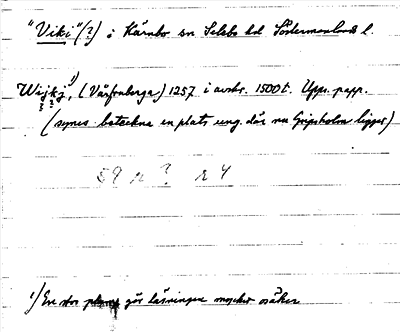 "Viki" (?) i Kärnbo sn Selebo hd Södermanlands l.
Wijkj, 1) (Vårfruberga) 1257 i avskr. 1500t. Upps. papp.
(synes beteckna en plats ung. där nu Gripsholm ligger)
59 ?
1) En stor plump gör läsningen mycket osäker